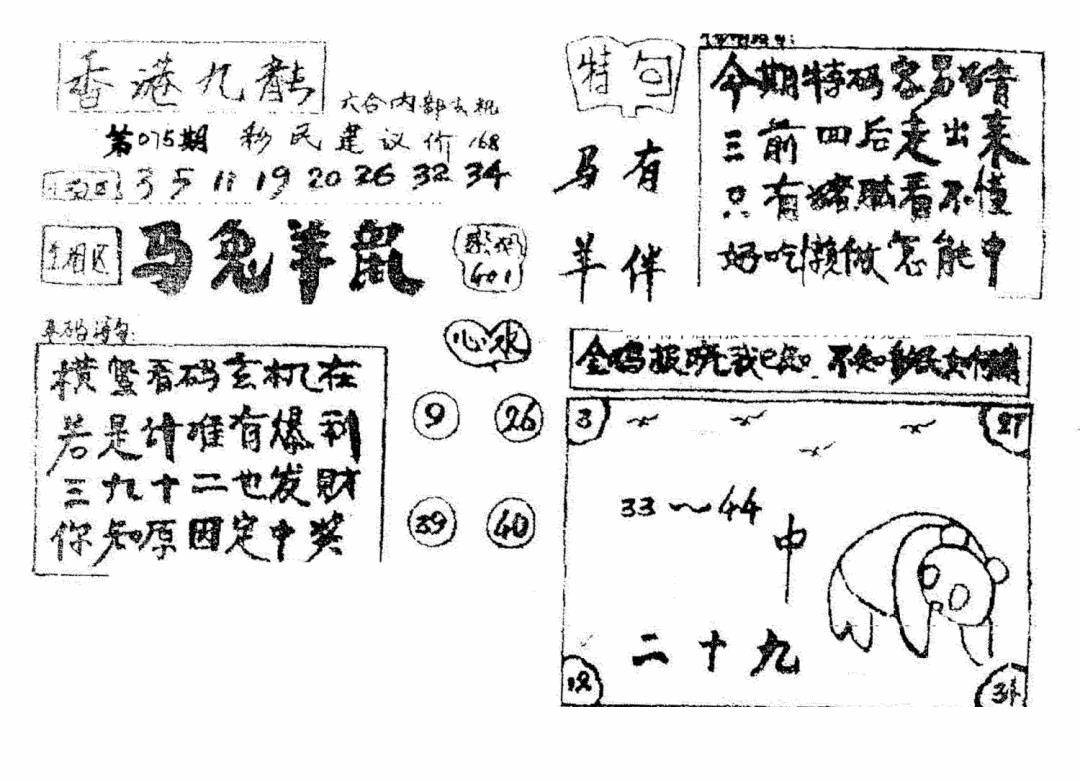 香港九龍
六合内部玄机
第075期 移民建议价168
3 5 11 19 20 26 32 34
生肖区
马兔羊鼠
横竖看码玄机在
若是计难有爆利
三九十二也发财
你知原因定中奖
心水
9 26
39 40
特句
马有
羊伴
今期特码容易猜
三前四后走出来
只有猪贼看不懂
好吃懒做怎能中
3
27
33~44
中
二十九
12